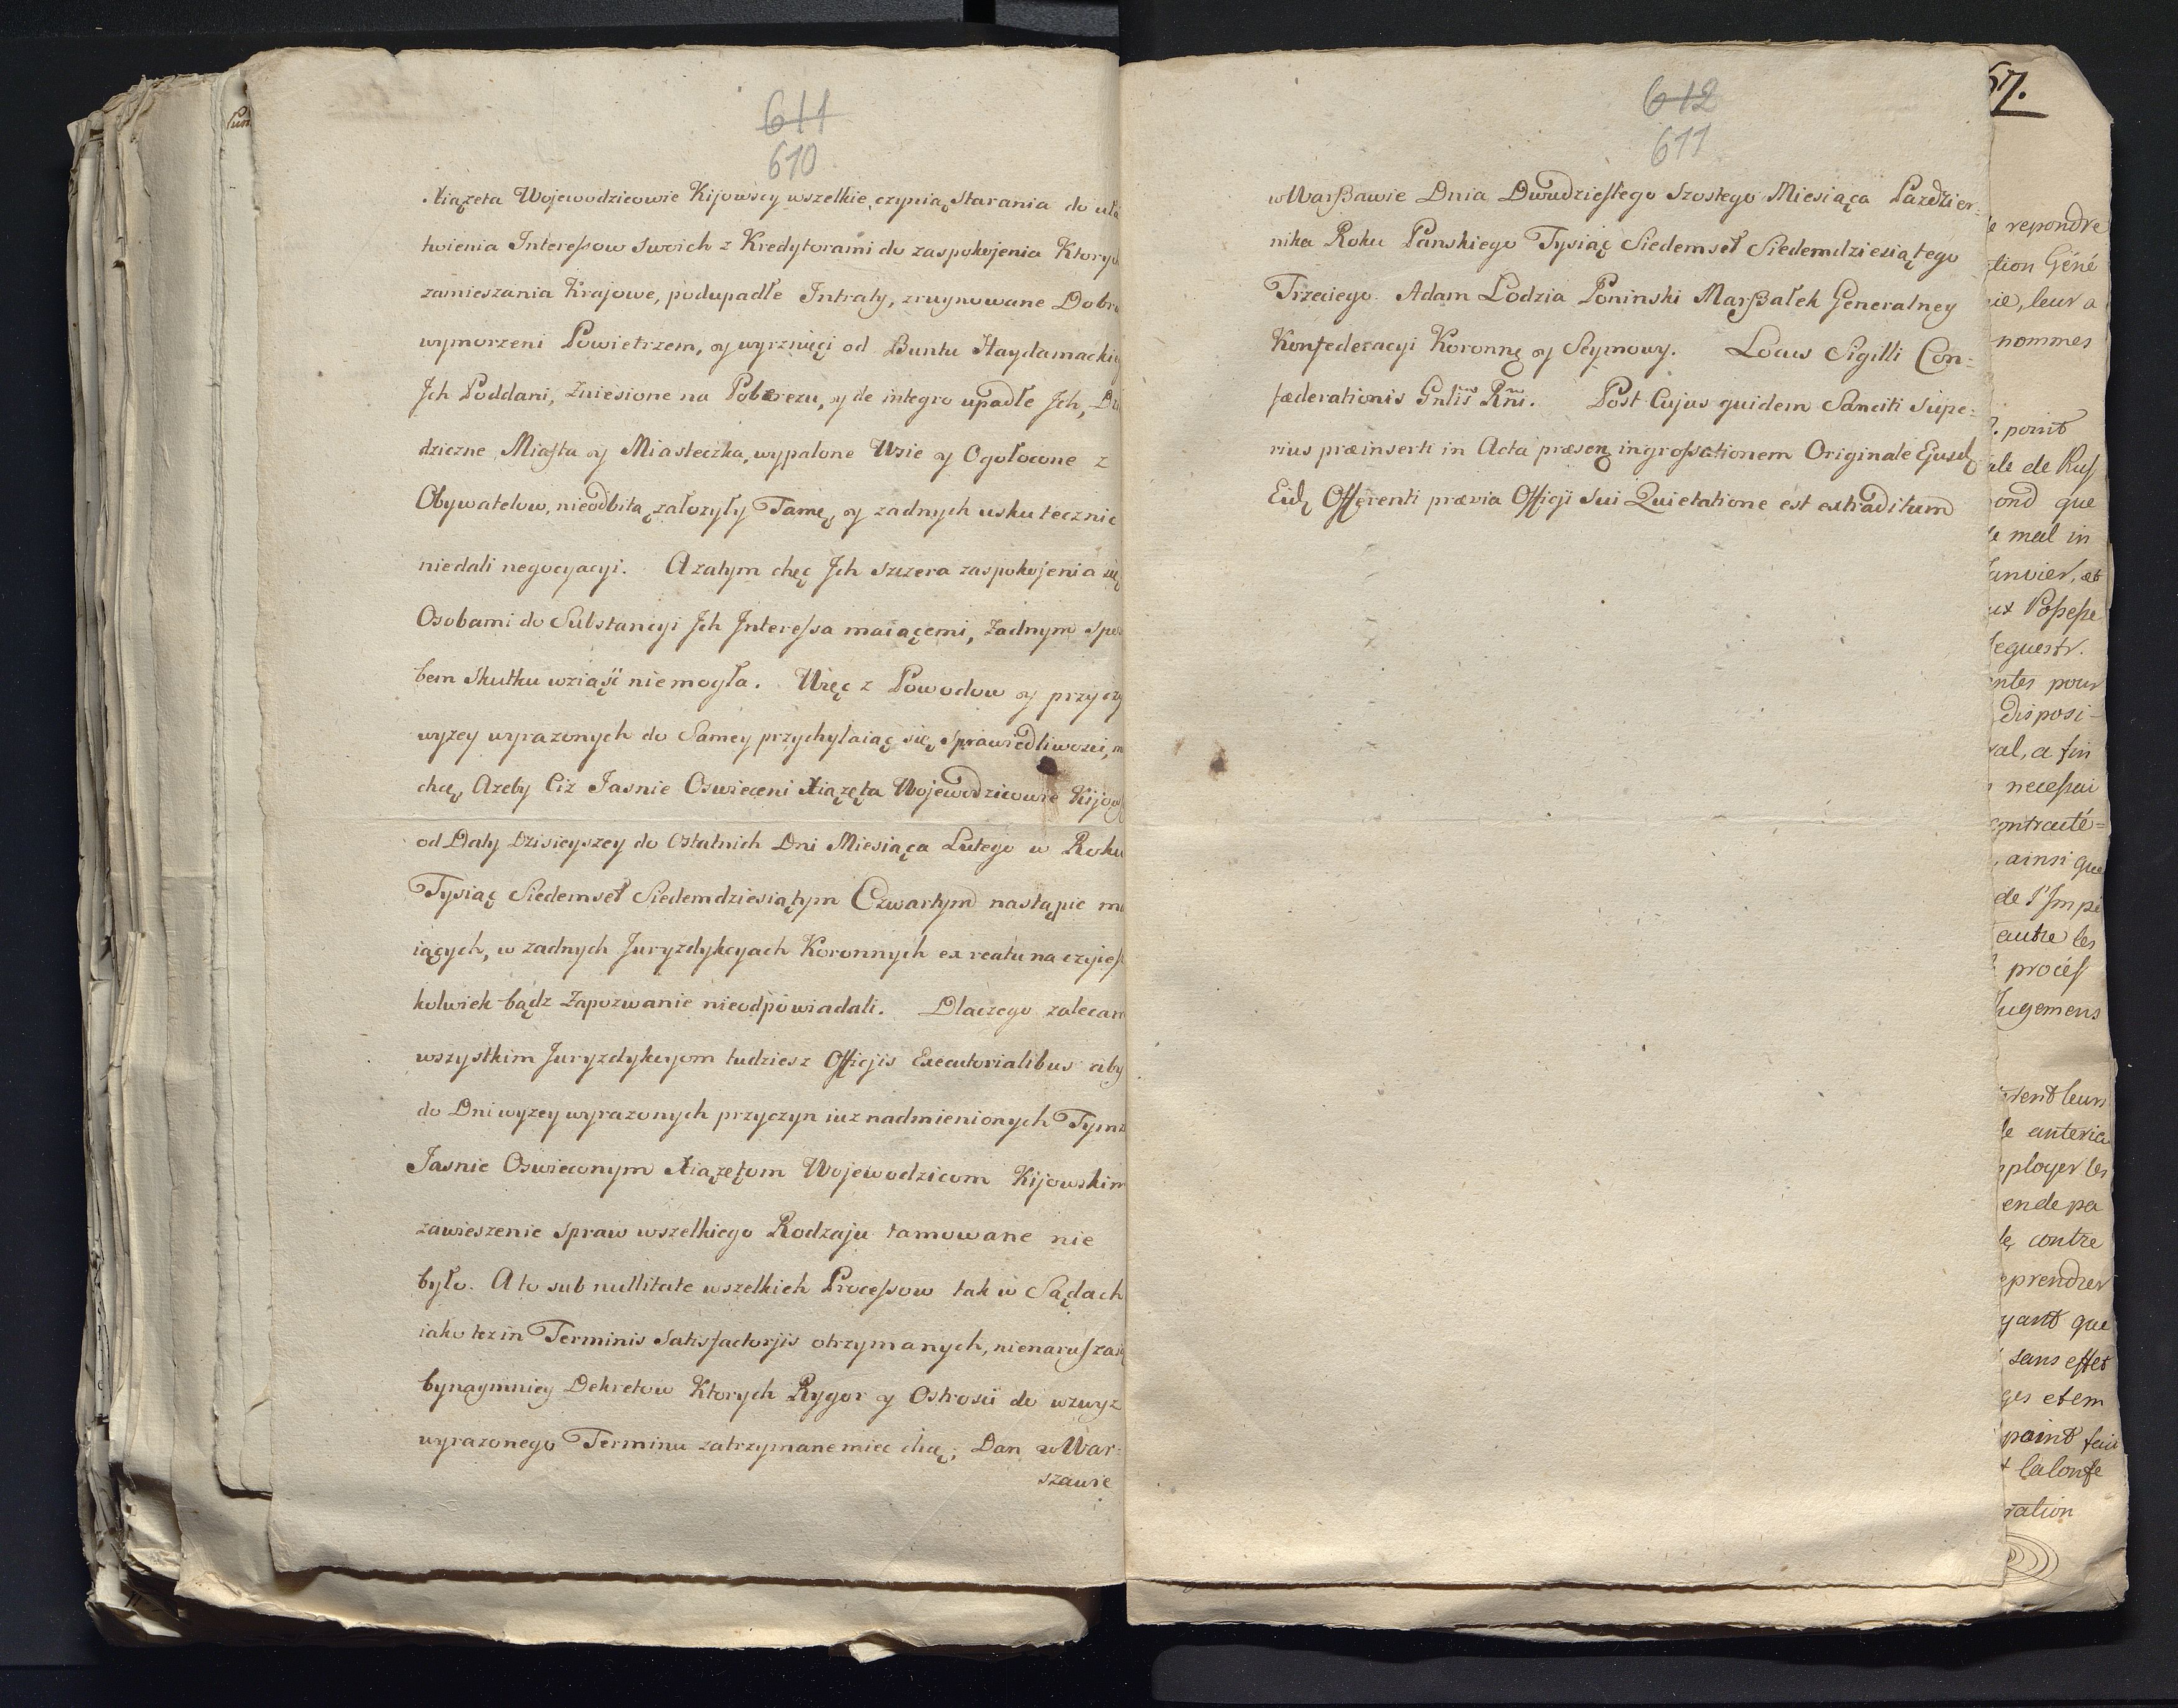 611
610
Xiązeta Wojewodzicowie Kijowscy wszelkie czynią Starania do uła
twienia Interessow Swoich z Kredytorami do zaspokojenia Ktorych
zamieszania Krajowe, podupadłe Intraty, zruynowane Dobra
wymorzeni Powietrzem, y wyrznięci od Buntu Haydamackie
Jch Poddani, Zniesione na Poberezu, y de integro upadłe Jch,
dziczne Miasta y Miasteczka, wypalone Wsie y Ogołocone z
Obywatelow, nieodbitą załozyły Tamę, y zadnych uskutecznic
niedali negocyacyi. A zatym chęc Jch Szczera zaspokojenia się
Osobami do Substancyi Jch Jnteressa maiącemi, Zadnym Spo
bem Skutku wziąść niemogła. Więc z Powodow y przyczy
wyzey wyrazonych do Samey przychylaiąc się Sprawiedliwosci,
chcę, Azeby Ciz Jasnie Oswieceni Xiązęta Wojewodzicowie Kijow
od Daty Dzisieyszey do Ostatnich Dni Miesiąca Lutego w Roku
Tysiąc Siedemset Siedemdziesiątym Czwartym nastąpic ma
iących, w zadnych Juryzdykcyach Koronnych ex reatu na czyies
kolwiek bądz Zapozwanie nieodpowiadali. Dlaczego zalecam
wszystkim Juryzdykcyom tudziesz Officjis Executorialibus aby
do Dni wyzey wyrazonych przyczyn iuz nadmienionych Tymz
Jasnie Oswieconym Xiązętom Wojewodzicom Kijowskim
zawieszenie Spraw wszelkiego Rodzaju tamowane nie
było. A to sub nullitate wszelkich Processow tak w Sądach
iako tez in Terminis Satisfactorjis otrzymanych, nienaruszaią
bynaymniey Dekretow Ktorych Rygor y Ostrosci do wzwyz
wyrazonego Terminu zatrzymane miec chcę; Dan w War-
szawie
612
611
w Warszawie Dnia Dwudziestego Szostego Miesiąca Pazdzier-
nika Roku Panskiego Tysiąc Siedemset Siedemdziesiątego
Trzeciego. Adam Lodzia Poninski Marszałek Generalney
Konfederacyi Koronnę y Seymowy. Locus Sigilli Con-
fæderationis Gnlis Rni. Post Cujus quidem Sanciti Supe-
rius præinserti in Acta præsen ingrossationem Originale Ejusd
Eid Offerenti prævia Officji Sui Quietatione est extraditum
67.
repondre
tion Géné
leur a
nommes
point
de Rus
ond que
mal in
anvier, et
Possesse
sequestr.
ntes pour
disposi-
al, a fin
necessai
contracté=
, ainsi que
de l'Impé
autre les
procés
Jugemens
rent leurs
anteria
ployer les
en depa
contre
prendrer
yant que
sans effet
ges et em
point fai
ration